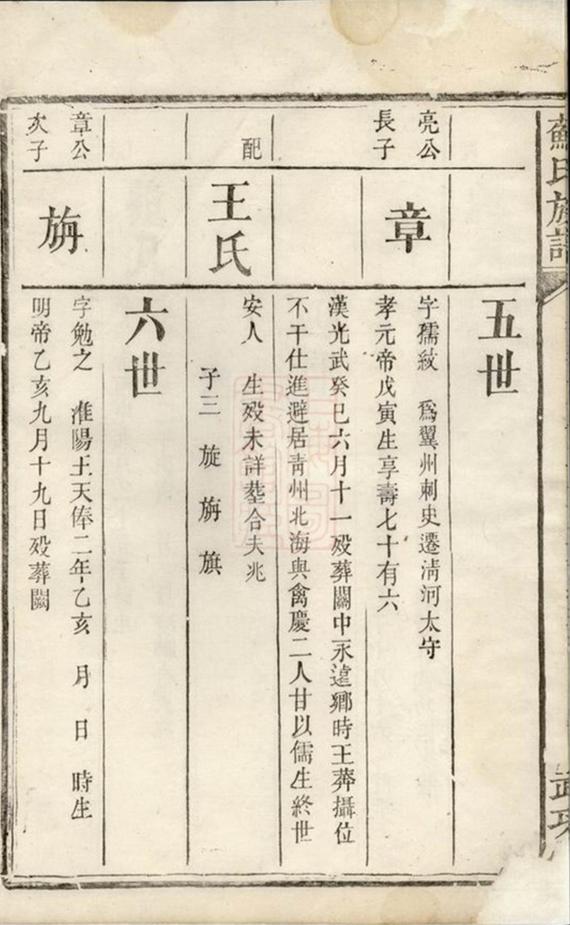 蘇氏族譜
五世
亮公
長子
章
字孺紋 爲翼州刺史遷清河太守
孝元帝戊寅生享壽七十有六
漢光武癸巳六月十一歿葬關中永違鄉時王莽攝位
不干仕進避居青州北海與禽慶二人甘以儒生終世
配
王氏
安人 生歿未詳塟合夫兆
子三 旋 旃 旗
六世
章公
次子
旃
字勉之 淮陽王天俸二年乙亥 月 日 時生
明帝乙亥九月十九日歿葬闕
武功